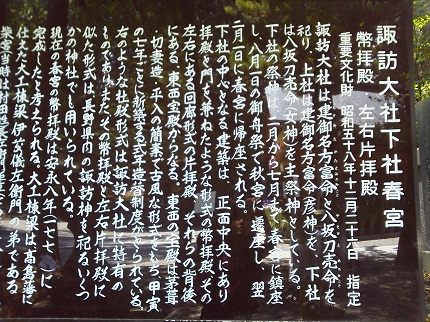 諏訪大社下社春宮
幣拝殿 左右片拝殿
重要文化財 昭和五十八年十二月二十六日 指定
諏訪大社は建御名方富命と八坂刀売命を
祀り、上社は建御名方富命(彦神)を、下社
は八坂刀売命(女神)を主祭神としている。
下社の祭神は二月から七月まで春宮に鎮座
し、八月一日の御舟祭で秋宮に遷座し、翌
二月一日に春宮に帰座される。
下社の中心となる建築は、正面中央にあり
拝殿と門を兼ねたような形式の幣拝殿、その
左右にある回廊形式の片拝殿、それらの背後
にある、東西宝殿からなる。東西の宝殿は茅葺
切妻造、平入の簡素で古風な形式をもち、甲寅
の七年ごとに新築する式年造替制度がとられている
右のような社殿形式は諏訪大社に特有の
ものであり、またその幣拝殿と左右片拝殿に
似た形式は、長野県内の諏訪神を祀るいくつ
かの神社でも用いられている。
現在の春宮の幣拝殿は安永八年(一七七九)に
完成したと考えられる。大工棟梁は高島藩に
仕えた大工棟梁伊藤儀左衛門の弟である